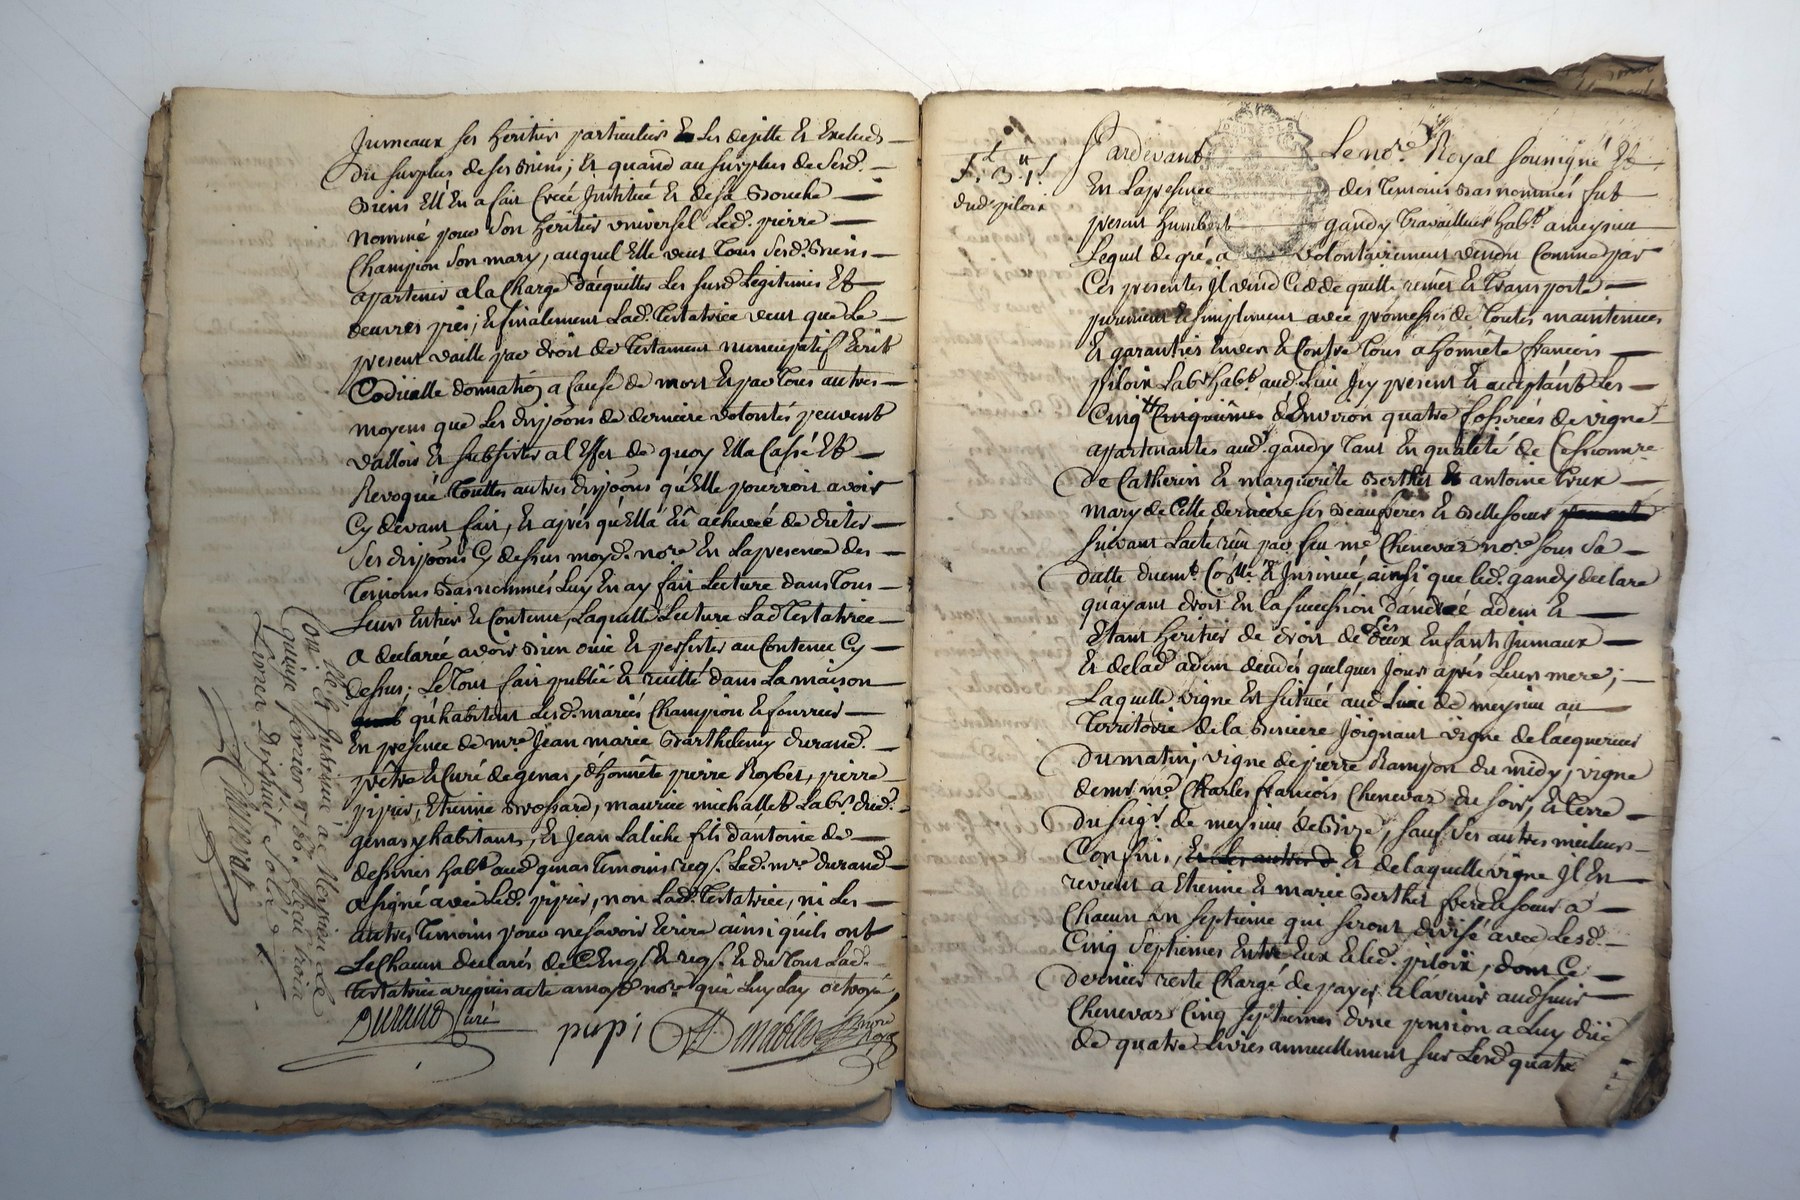 Jumeaux ses heritiers particuliers Et Les dejitte Et Exclud
du surplus de ses Biens; Et quand au surplus de Sesd.
Biens Ell En a fait Créé Instituée Et de sa Bouche
Nommé pour Son Heritier vniversel Led. pierre
Champion Son mary, auquel Elle veut Tous Sesd. Biens
apartenir a la Charge D'acquitter Les susd. Legitimes Et
oeuvres pies; Et finalement Lad. Testatrice veut que Le
present vaille par droit de Testament nuncupatif Ecrit
Codicille donnation a Cause de mort Et par Tous autres
moyens que Les disp̄ons de derniere volontés peuvent
valloir Et subsister a L'Effet de quoy Ell a Cassé Et
Revoqué Touttes autres disp̄ons qu'Elle pourroit avoir
Cy devant fait, Et aprés qu'Ell'a Eu achevée de dicter
Ses disp̄ons Cy dessus moyd. nore En La presence des
Temoins Bas nommés Luy En ay fait Lecture dans Tous
Leur Entier Et Contenu, Laquelle Lecture Lad. Testatrice
a declarée avoir Bien ouie Et persister au Contenu Cy
dessus; Le Tout fait publié Et recitté dans La maison
qu'habitent Lesd. mariés Champion Et fournier
En presence de mre Jean marie Barthelemy durand
prêtre Et Curé de genas, d'honnête pierre Roybet, pierre
pipier, Etienne Brossard, maurice michallet Labrs dud.
genas y habitants, Et Jean Laliche fils d'antoine de
dessines habt aud. genas Temoins reqs. Led. mre durand
a signé avec Led. pipier, non Lad. Testatrice, ni Les
autres Temoins pour ne savoir Ecrire ainsi qu'ils ont
Le Chacun declarés de Ce Enqs. Et reqs. Et du Tout Lad.
Testatrice a requis acte a moyd. nore que Luy day octroyé
Durand Curé pipi
Conlle Et Insinué a Meyzieu Le
quinze fevrier
Livres Dixhuit Sols
Par devant Le nore Royal soussigné Et
En La presence des Temoins Bas nommés fut
present Humbert gandy Travailleur habt a meysieu
Lequel de gré a volontairement vendu Comme par
Ces presentes Il vend Cedde quitte remet Et Transporte
purement Et simplement avec promesses de Toutes maintenues
Et garanties Envers Et Contre Tous a Honnête françois
piloix Labr habt aud. Lieu Icy present Et acceptant Les
Cinq Cinquiémes d'Environ quatre fosserées de vigne
appartenantes aud. gandy Tant En qualité de Cessionnre
de Catherin Et marguerite Berthet Et antoine
mary de Cette derniere ses Beaufreres Et Bellesoeur
suivant L'acte reçu par feu me Chenevaz nore sous sa
datte duemt Conllé Et Insinué, ainsi que Led. gandy declare
qu'ayant droit En La succession d'andreé adem Et
Etant Heritier de droit de Ses deux Enfants Jumaux
Et de Lad. adem decedés quelques Jours aprés Leur mere;
Laquelle vigne Est situeé aud. Lieu de meysieu au
Territoire de La Biniere Joignant vigne de
du matin, vigne de pierre Rampon du midy, vigne
de mr. me Charles françois Chenevaz du soir, Et Terre
du seigr. de meysieu de Bize, sauf ses autres meilleurs
Confins, Et de Laquelle vigne Il En
revient a Etienne Et marie Berthet frere Et soeur a
Chacun un septieme qui seront divisé avec Lesd.
Cinq Septiemes Entre Eux Et Led. piloix, dont Ce
dernier reste Chargé de payer a L'avenir aud. sieur
Chenevaz Cinq septiemes d'une pension a Luy düe
de quatre Livres annuellement sur Lesd. quatre